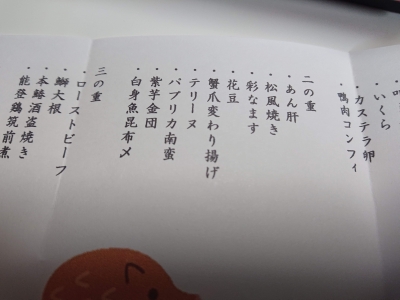 ・いくら
・カステラ卵
・鴨肉コンフィ
二の重
・あん肝
・松風焼き
・彩なます
・花豆
・蟹爪変わり揚げ
・テリーヌ
・パプリカ南蛮
・紫芋金団
・白身魚昆布〆
三の重
・ローストビーフ
・鰤大根
・本鰆酒盗焼き
・能登鶏筑前煮